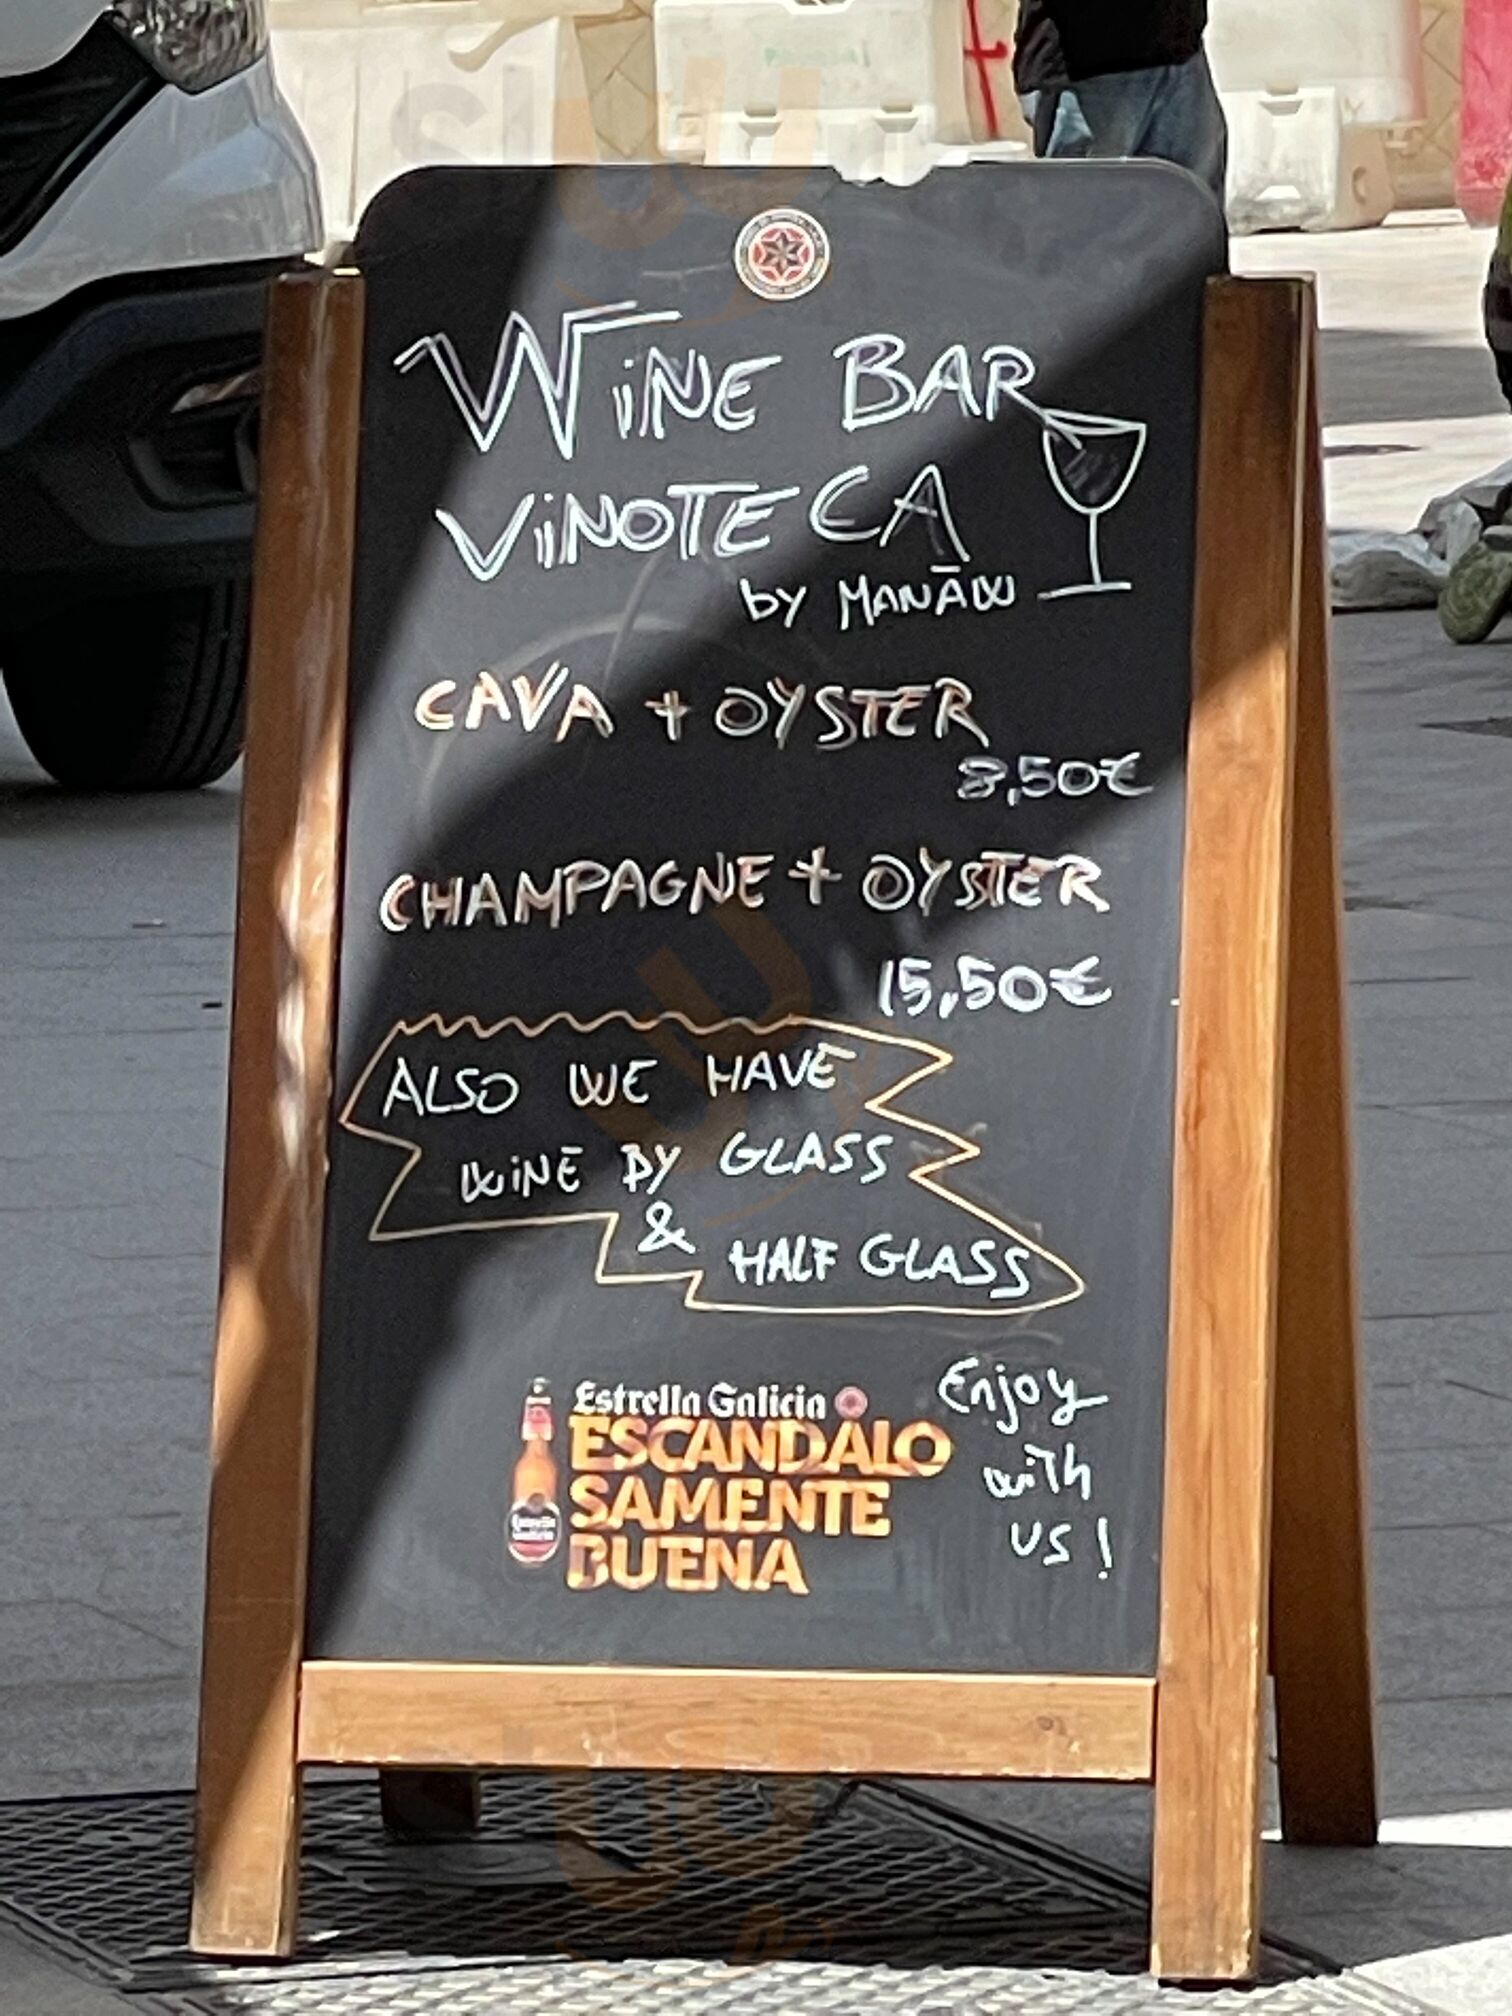 WiNE BAR
ViNOTECA
by MANĀW
CAVA + OYSTER
8,50€
CHAMPAGNE + OYSTER
15,50€
ALSO WE HAVE
WiNE BY GLASS
&
HALF GLASS
Estrella Galicia
ESCANDALO
SAMENTE
BUENA
Enjoy
with
us!